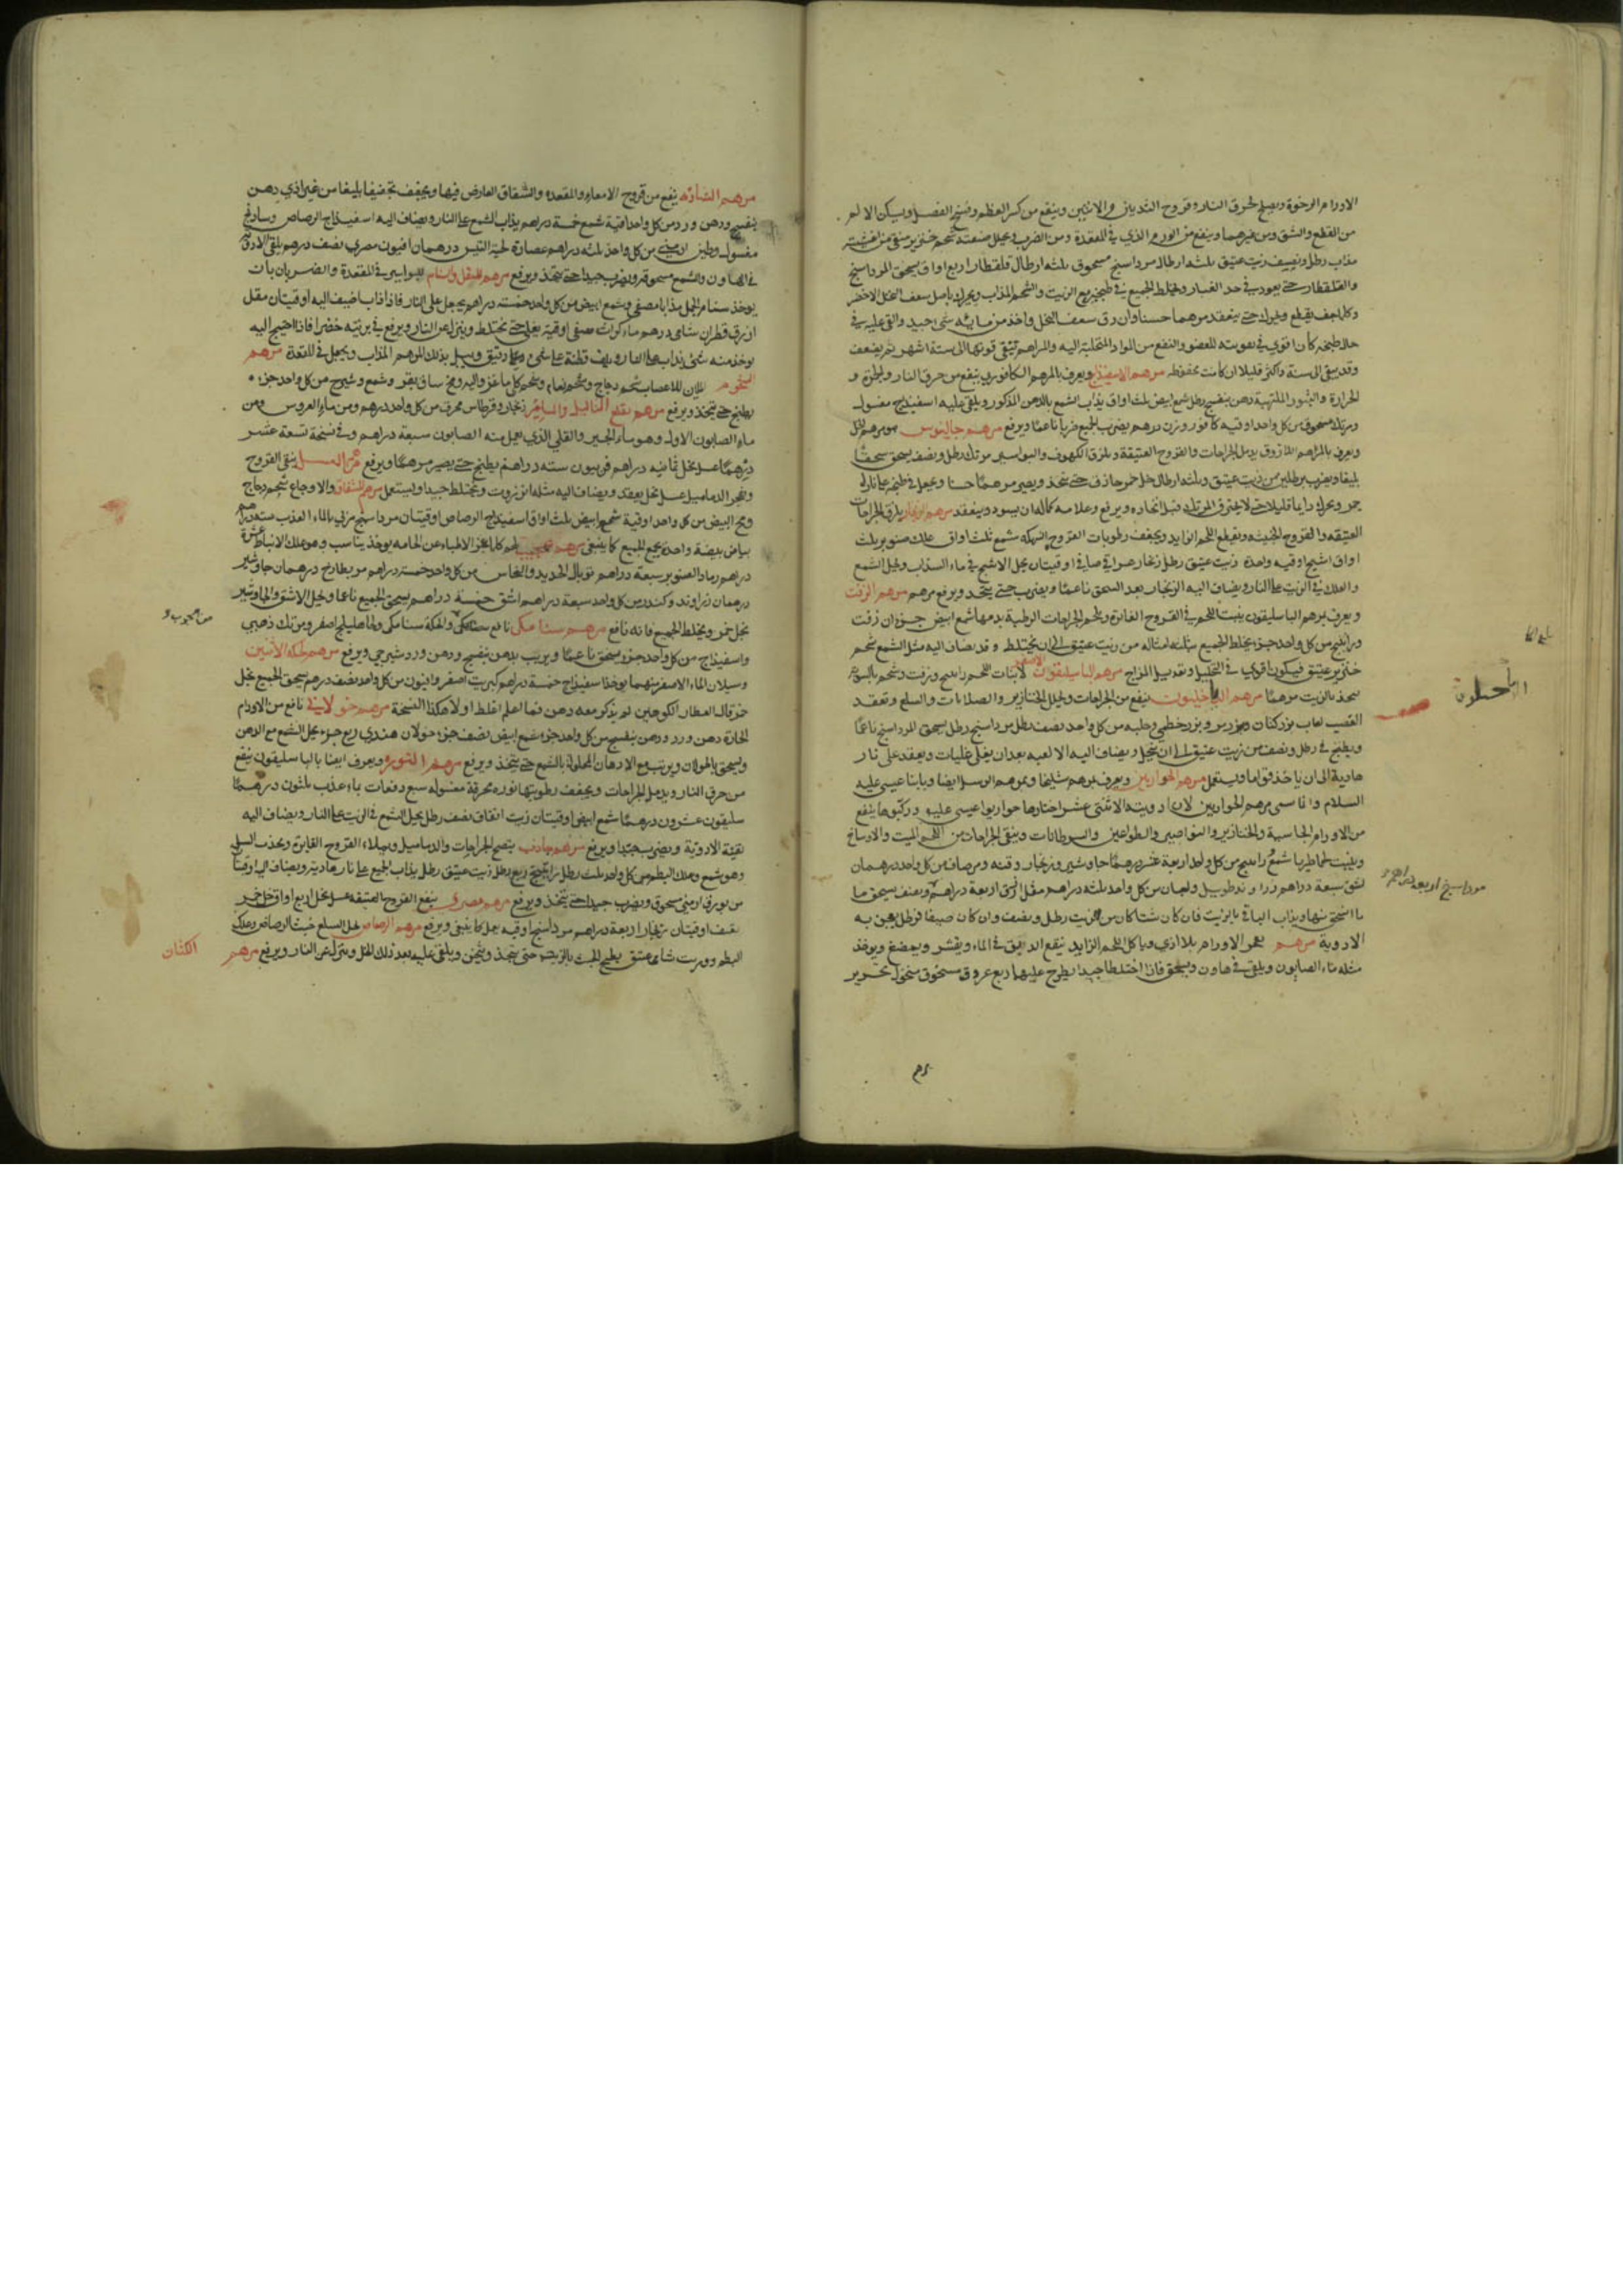 الاورام الرخوة ويصلح لحرق النار وقروح الثديان والانثيين وينفع من كسر العظم وفسخ العضل ويسكن الالم
من القطع والشق ومن غيرهما وينفع من الورم الذي في المقعدة ومن الضرب ويحلل صنعته شحم خنزير منقى من اغشيته
مذاب رطل ونصف زيت عتيق ثلثه ارطال مرداسنج مسحوق ثلثه ارطال قلقطار اربع اواق يسحق المرداسنج
والقلقطار حتى يعود في حد الغبار ويخلط الجميع في طنجير مع الزيت والشحم المذاب ويحرك باصل سعف النخل الاخضر
وكلما جف يقطع ويحرك حتى ينعقد مرهما حسنا وان دق سعف النخل واخذ من مايئه شي جيد والقي عليه في
حال طبخه كان اقوى في تقويته للعضو والنفع من المواد المتحلبة اليه والمراهم تبقى قوتها الى ستة اشهر ثم يضعف
وقد يبقى الى سنة واكثر قليلا ان كانت محفوظه مرهم الاسفيذاج ويعرف بالمرهم الكافوري ينفع من حرق النار والحمرة و
الحرارة والبثور الملتهبة دهن بنفسج رطل شمع ابيض ثلث اواق يذاب الشمع بالدهن المذكور ويلقى عليه اسفيذاج مغسول
ومرتك مسحوق من كل واحد اوقيه كافور وزن درهم يضرب الجميع ضربا ناعما ويرفع مرهم جالينوس هو مرهم الخل
ويعرف بالمراهم اللازوق يدمل الجراحات والقروح العتيقة ويلزق الكهوف والبواسير مرتك رطل ونصف يسحق سحقا
بليغا ويضرب برطلين من زيت عتيق وثلثه ارطال خل خمر حاذق حتى يتخذ ويصير مرهما حسنا ويجعل في طنجير على نار
جمر ويحرك دايما قليلا حتى لا يحترق المرتك قبل اتحاده ويرفع وعلامه كماله ان يسود وينعقد مرهم الزنجار يلزق الجراحات
العتيقه والقروح الخبيثه ويقطع اللحم الزايد ويجفف رطوبات القروح النهكه شمع ثلث اواق علك صنوبر ثلث
اواق اشج اوقيه واحدة زيت عتيق رطل زنجار صافي اوقيتان يحل الاشج في ماء السذاب ويحل الشمع
والعلك في الزيت على النار ويضاف اليه الزنجار بعد السحق ناعما ويضرب حتى يتخذ ويرفع مرهم مرهم الزفت
ويعرف بمرهم الباسليقون ينبت اللحم في القروح الغايرة ويلحم الجراحات الرطبة بدمها شمع ابيض جزوان زفت
وراتينج من كل واحد جزء يخلط الجميع بثلثه امثاله من زيت عتيق الى ان يختلط وقد يضاف اليه مثل الشمع شحم
خنزير عتيق فيكون اقوى في التحليل وتعديل المزاج مرهم الباسليقون الاصغر لانبات اللحم راتينج وزفت وشحم بالسويه
يتخذ بالزيت مرهما مرهم الداخليون ينفع من الجراحات ويحلل الخنازير والصلابات والسلع وتعقد
العصب لعاب بزر كتان وبزر مرو وبزر خطمي وحلبه من كل واحد نصف رطل مرداسنج رطل يسحق المرداسنج ناعما
ويطبخ في رطل ونصف من زيت عتيق الى ان ينحل ويضاف اليه الالعبه بعد ان يغلى غليات ويعقد على نار
هادية الى ان ياخذ قواما ويستعمل مرهم الحواريين ويعرف بمرهم شليخا وبمرهم الرسل ايضا وبابنا عيسى عليه
السلام وانما سمى مرهم الحواريين لان ادويته الاثنتى عشر اختارها حواريوا عيسى عليه وركبوها ينفع
من الاورام الجاسية والخنازير والنواصير والطواعين والسرطانات وينقي الجراحات من اللحم الميت والاوساخ
وينبت لحما طريا شمع راتينج من كل واحد اربعة عشر درهما جاوشير وزنجار وقنه ومر صاف من كل واحد درهمان
اشق سبعة دراهم زراوند طويل ولبان من كل واحد ثلثه دراهم مقل ازرق اربعة دراهم ونصف يسحق ما
ما انسحق منها ويذاب الباقي بالزيت فان كان شتا كان من الزيت رطل ونصف وان كان صيفا فرطل يعجن به
الادوية مرهم يفجر الاورام بلا اذى وياكل اللحم الزايد ينقع الدبق في الماء ويقشر ويمضغ ويوخذ
مثله ماء الصابون ويلقى في هاون ويسحق فاذا اختلطا جيدا يطرح عليهما ربع عروق مسحوق منخول بحرير
الداخليون
مرداسنج اربعه دراهم
مرهم الشاذنه ينفع من قروح الامعاء والمقعده والشقاق العارض فيها ويجفف تجفيفا بليغا من غير اذي دهن
بنفسج ودهن ورد من كل واحد اوقية شمع خمسة دراهم يذاب الشمع على النار ويضاف اليه اسفيذاج الرصاص وساذنج
مغسول وطين ارمني من كل واحد ثلثه دراهم عصارة لحية التيس درهمان افيون مصري نصف درهم يلقى الادوية
في الهاون والشمع مسحوقه ويضرب جيدا حتى يتخذ ويرفع مرهم المقل والسنام للبواسير في المقعدة والضربان بات
يوخذ سنام الجمل مذابا مصفى وشمع ابيض من كل واحد خمسته دراهم يجعل على النار فاذا ذاب اضيف اليه اوقيتان مقل
ازرق قطران شامي درهم ماء كراث مصفى اوقيه يغلى حتى يختلط وينزل عن النار ويرفع في برنيه خضرا فاذا احتيج اليه
يوخذ منه شي يذاب على النار ويلف قطنة على شي دقيق ويبل بذلك المرهم المذاب ويجعل في المقعدة مرهم
الشحوم اللين للاعصاب شحم دجاج وشحم نعام وشحم كلى ماعز واليه ومخ ساق بقر وشمع وشيرج من كل واحد جزء
يطبخ حتى يتخذ ويرفع مرهم يقلع الثاليل والمسامير زنجار وقرطاس محرق من كل واحد درهم ومن ماء العروس ومن
ماء الصابون الاول وهو ماء الجير والقلي الذي يعمل منه الصابون سبعة دراهم وفي نسخة تسعة عشر
درهما عسل نحل ثمانيه دراهم فربيون سته دراهم يطبخ حتى يصير مرهما ويرفع مرهم العسل ينقى القروح
ويفجر الدماميل عسل نحل يعقد ويضاف اليه مثله انزروت ويختلط جيدا ويستعمل مرهم للشقاق والاوجاع شحم دجاج
ومخ البيض من كل واحد اوقية شمع ابيض ثلث اواق اسفيذاج الرصاص اوقيتان مرداسنج مربى بالماء العذب سته دراهم
بياض بيضة واحدة يجمع الجميع كما ينبغي مرهم عجيب
دراهم رماد الصنوبر سبعة دراهم توبال الحديد والنحاس من كل واحد خمسة دراهم
درهمان زراوند وكندر من كل واحد سبعة دراهم اشق خمسة دراهم يسحق الجميع ناعما ويحل الاشق والجاوشير
بخل خمر ويخلط الجميع فانه نافع مرهم سنا مكى نافع والحكة سنا مكى واهليلج اصفر ومرتك ذهبي
واسفيذاج من كل واحد جزء يسحق ناعما ويربب بدهن بنفسج ودهن ورد شيرجي ويرفع مرهم لحكة الانثيين
وسيلان الماء الاصفر منهما يوخذ اسفيذاج خمسة دراهم كبريت اصفر وافيون من كل واحد نصف درهم يسحق الجميع بخل
خمر قال العطار الكوهين لم يذكر معه دهن فما اعلم اغلط او لا هكذا النسخة مرهم خولاني نافع من الاورام
الحارة دهن ورد ودهن بنفسج من كل واحد جزء شمع ابيض نصف جزء خولان هندي ربع جزء يحل الشمع مع الدهن
ويسحق بالخولان ويربب مع الادهان المحلولة بالشمع حتى يتخذ ويرفع مرهم النوره ويعرف ايضا بالباسليقون ينفع
من حرق النار ويدمل الجراحات ويجفف رطوبتها نوره محرقة مغسوله سبع دفعات بماء عذب ثلثون درهما
سليقون عشرون درهما شمع ابيض اوقيتان زيت انفاق نصف رطل يحل الشمع في الزيت على النار ويضاف اليه
بقية الادوية ويضرب جيدا ويرفع مرهم جاذب ينضج الجراحات والدماميل وجلاء القروح الغايرة ويجذب السلى
وهو شمع وعلك البطم من كل واحد ثلث رطل راتينج ربع رطل زيت عتيق رطل يذاب الجميع على نار هادية ويضاف اليه اوقيتان
من بورق ارمني مسحوق ويضرب جيدا حتى يتخذ ويرفع مرهم مصري ينفع القروح العتيقه عسل نحل اربع اواق خل خمر
نصف اوقيتان زنجار اربعة دراهم مرداسنج اوقيه يعمل كما ينبغي ويرفع مرهم الرصاص لحل السلع خبث الرصاص وعلك
البطم وزيت شامي عتيق يطبخ الخبث بالزيت حتى يتخذ ويثخن ويلقى عليه بعد ذلك المقل وينزل عن النار ويرفع مرهم
الكتان